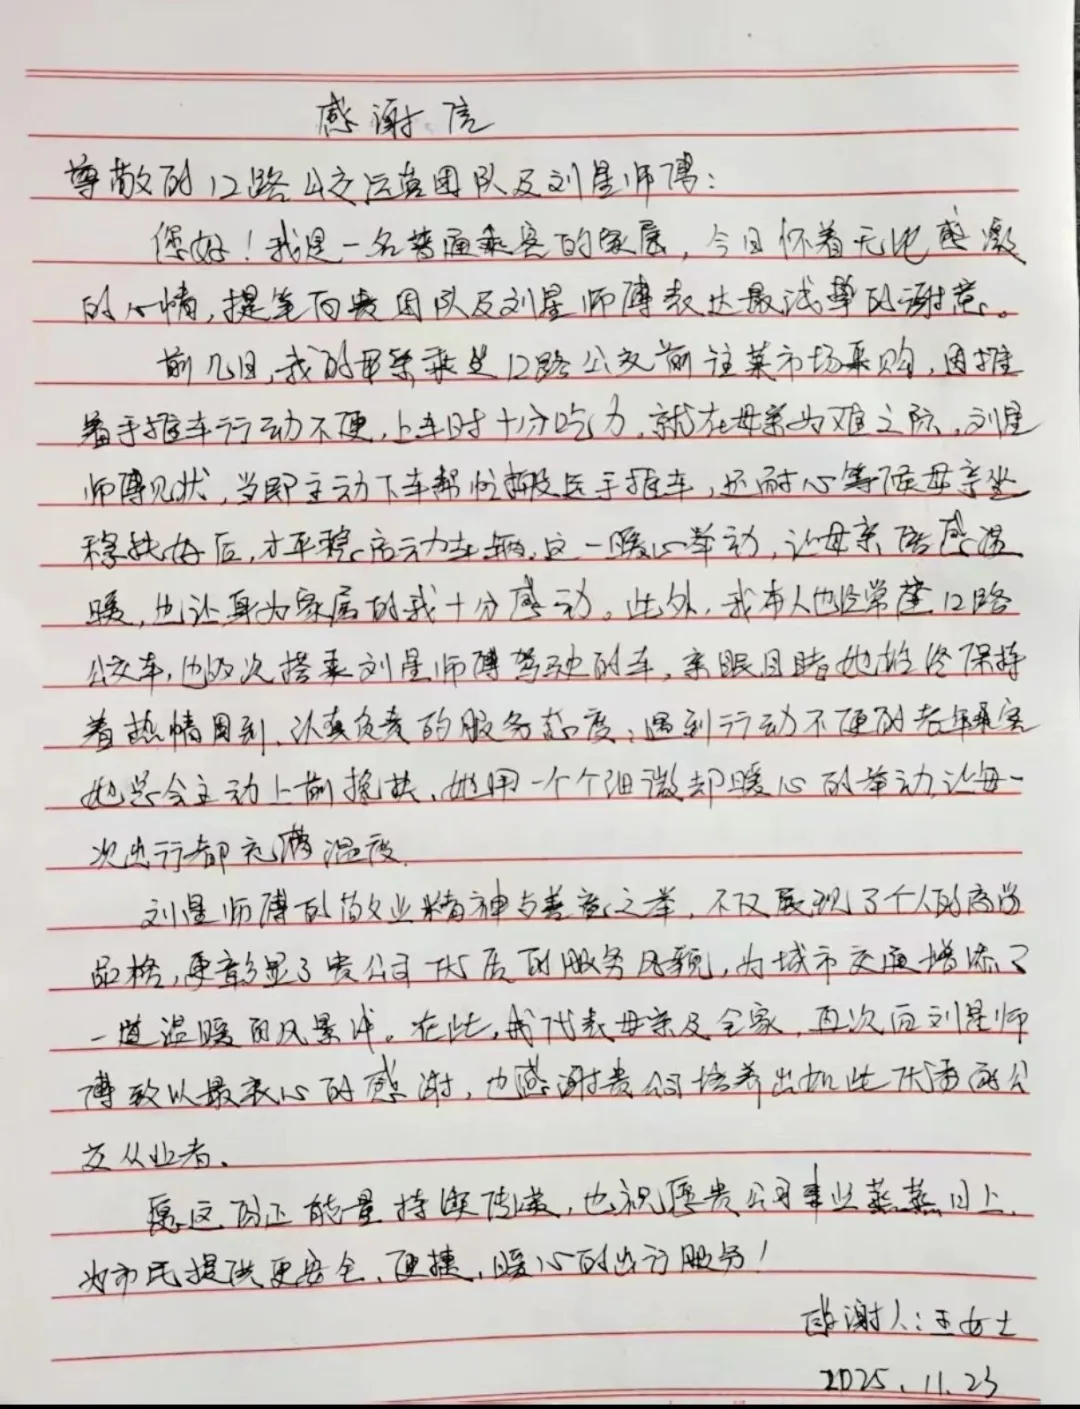 感谢信
尊敬的12路公交运营团队及刘星师傅：
您好！我是一名普通乘客的家属，今日怀着无比感激
的心情，提笔向贵团队及刘星师傅表达最诚挚的谢意。
前几日，我的母亲乘坐12路公交前往菜市场采购，因推
着手推车行动不便，上车时十分吃力，就在母亲为难之际，刘星
师傅见状，当即主动下车帮忙搬运手推车，还耐心等候母亲坐
稳扶好后，才平稳启动车辆，这一暖心举动，让母亲倍感温
暖，也让身为家属的我十分感动。此外，我本人也经常坐12路
公交车，也多次搭乘刘星师傅驾驶的车，亲眼目睹她始终保持
着热情周到、认真负责的服务态度；遇到行动不便的老年乘客
她总会主动上前搀扶、她用一个个细微却暖心的举动，让每一
次出行都充满温度。
刘星师傅的敬业精神与善意之举，不仅展现了个人的高尚
品格，更彰显了贵公司优质的服务风貌，为城市交通增添了
一道温暖的风景线。在此，我代表母亲及全家，再次向刘星师
傅致以最衷心的感谢，也感谢贵公司培养出如此优秀的公
交从业者。
愿这份正能量持续传递，也祝愿贵公司事业蒸蒸日上，
为市民提供更安全、便捷、暖心的出行服务！
感谢人：王女士
2025.11.23